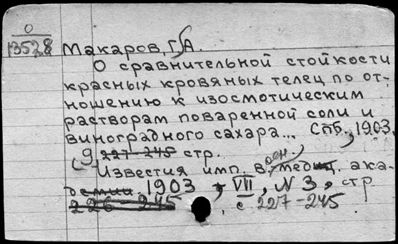 0
13528
Макаров, Г. А.
О сравнительной стойкости
красных кровяных телец по от-
ношению к изосмотическим
растворам поваренной соли и
виноградного сахара... Спб., 1903.
9 227-245 стр.
Известия имп. воен. медиц. ака-
демии. 1903, VII, N 3, стр
226 245. с. 227-245.